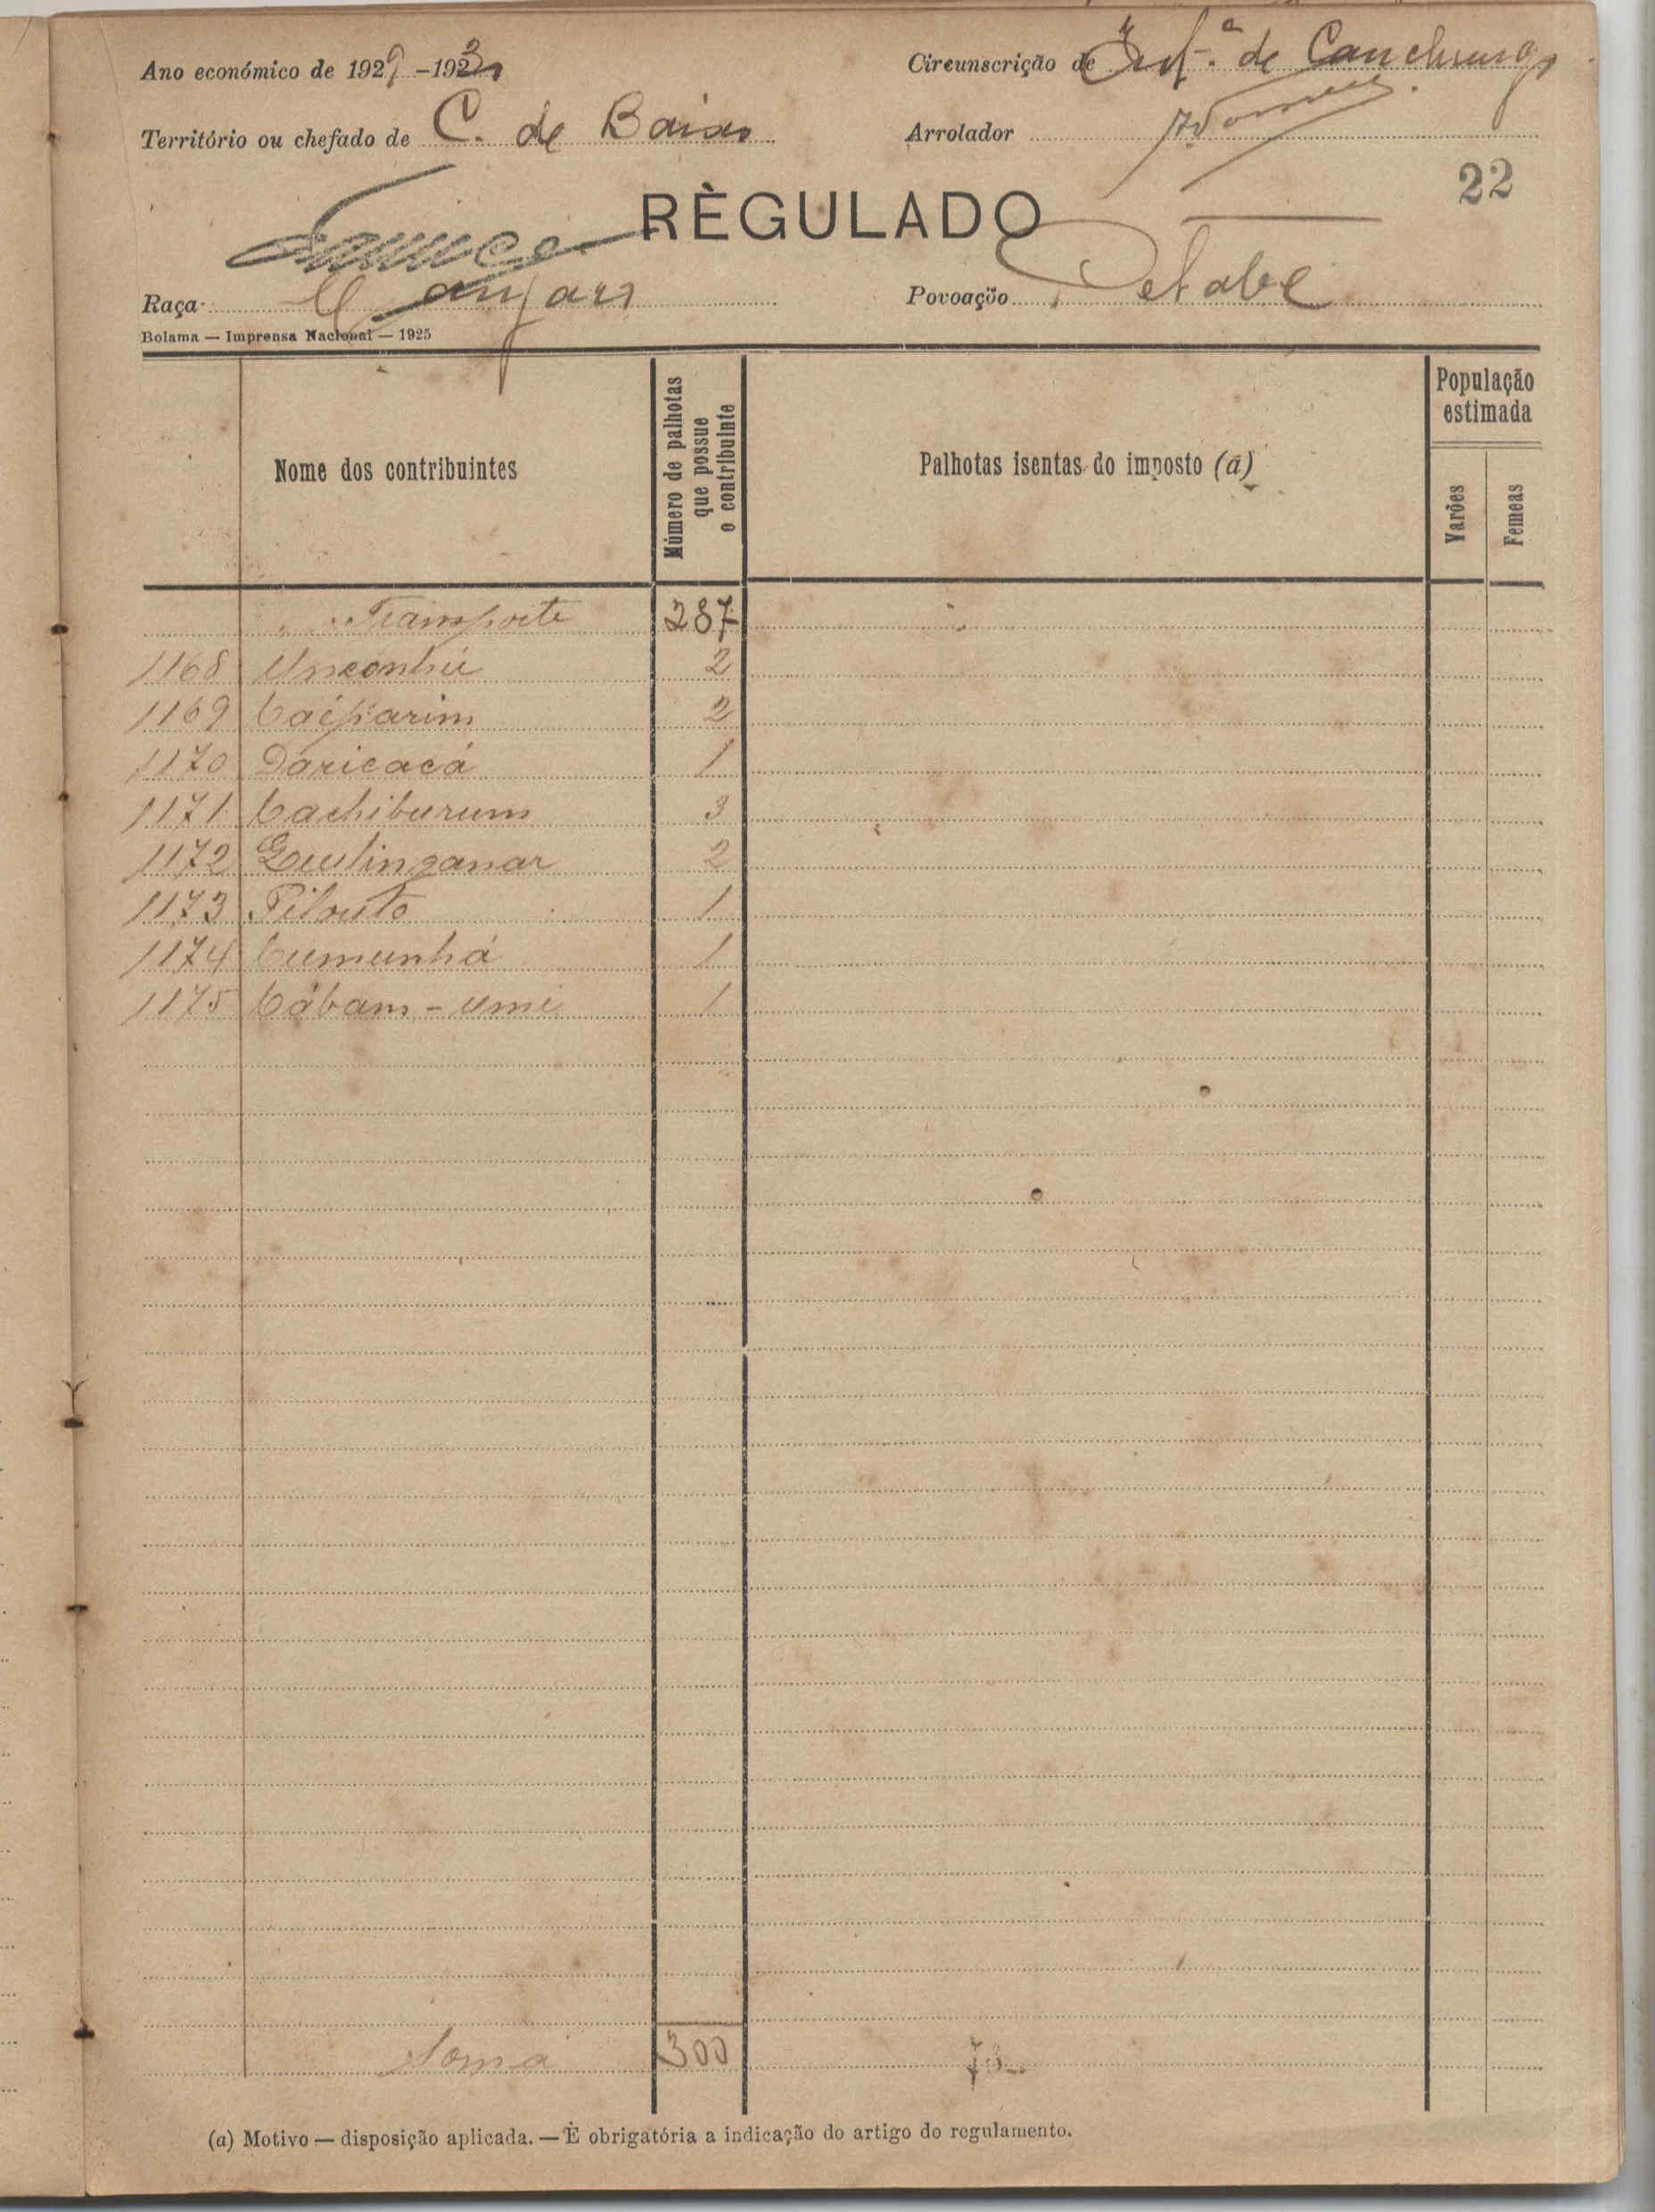 Ano económico de 1929 -193
Circunscrição de de Canchungo
Território ou chefado de C. de Baixo
Arrolador
22
RÈGULADO
Raça
Povoação Petabe
Bolama — Imprensa Nacional — 1925
Nome dos contribuintes
Número de palhotas
que possue
o contribuinte
Palhotas isentas do imposto (a)
População
estimada
Varões
Femeas
Transporte 287
1168 Unconhé 2
1169 Caiparim 2
1170 Daricacá 1
1171 Cachiburum 3
1172 2
1173 1
1174 Cumunhá 1
1175 Cábam - umi 1
Soma 300
(a) Motivo — disposição aplicada. — È obrigatória a indicação do artigo do regulamento.